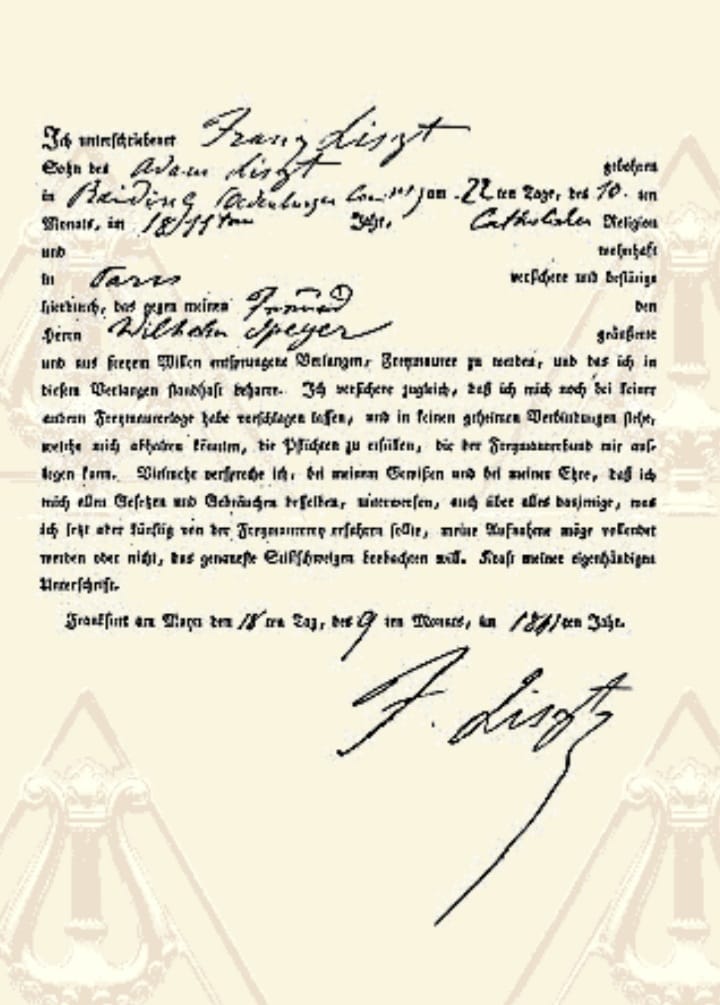 Ich unterschriebener Franz Liszt
Sohn des Adam Liszt gebohren
in Raiding Oedenburger Comitat am 22 ten Tage, des 10. ten
Monats, im 1811 ten Jahr, Catholischer Religion
und wohnhaft
in Paris versichere und bestätige
hierdurch, das gegen meinen Freund den
Herrn Wilhelm Speyer geäußerte
und aus freyem Willen entsprungene Verlangen, Freymaurer zu werden, und das ich in
diesem Verlangen standhaft beharre. Ich versichere zugleich, daß ich mich noch bei keiner
andern Freymaurerloge habe vorschlagen lassen, und in keinen geheimen Verbindungen stehe,
welche mich abhalten könnten, die Pflichten zu erfüllen, die der Freymaurerbund mir auf-
legen kann. Vielmehr verspreche ich, bei meinem Gewißen und bei meiner Ehre, daß ich
mich allen Gesetzen und Gebräuchen desselben, unterwerfen, auch über alles dasjenige, was
ich jetzt oder künftig von der Freymaurerey erfahren sollte, meine Aufnahme möge vollendet
werden oder nicht, das genaueste Stillschweigen beobachten will. Kraft meiner eigenhändigen
Unterschrift.
Frankfurt am Mayn den 18 ten Tag, des 9 ten Monats, im 1841 ten Jahr.
F. Liszt